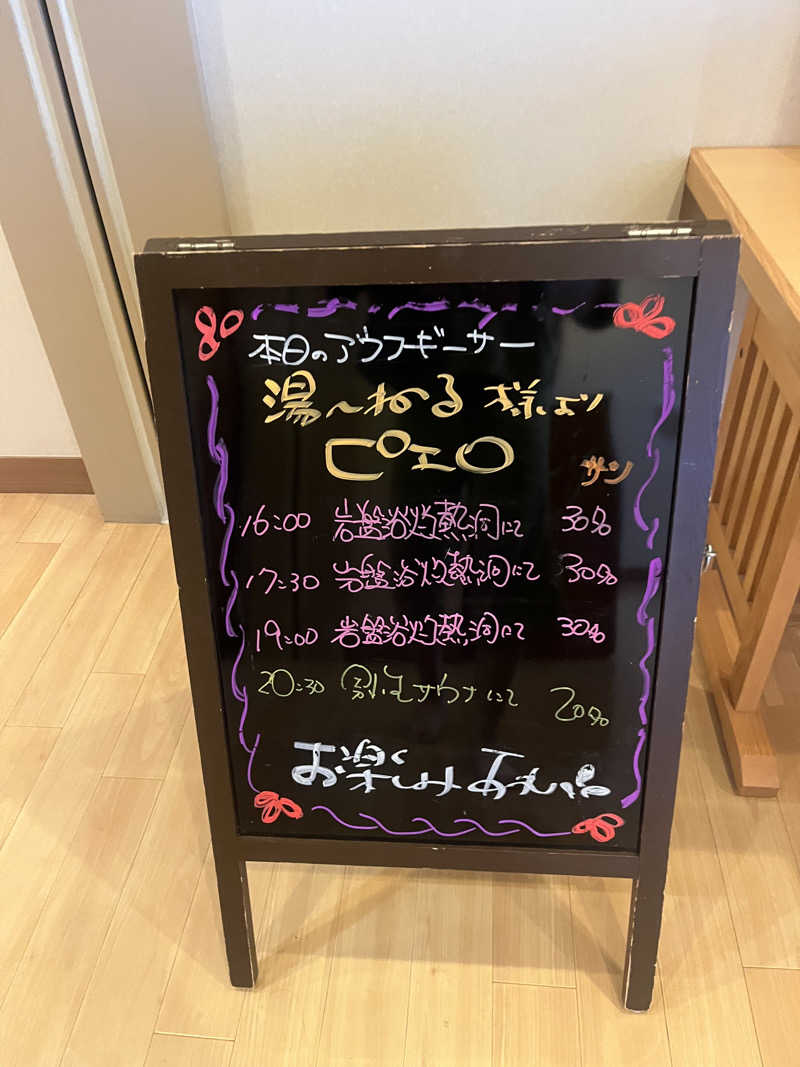 本日のアウフギーサー
湯〜ねる お美より
ピエロ サン
16:00 岩盤浴灼熱洞にて 30名
17:30 岩盤浴灼熱洞にて 30名
19:00 岩盤浴灼熱洞にて 30名
20:30 男性サウナにて 20名
お楽しみあれ